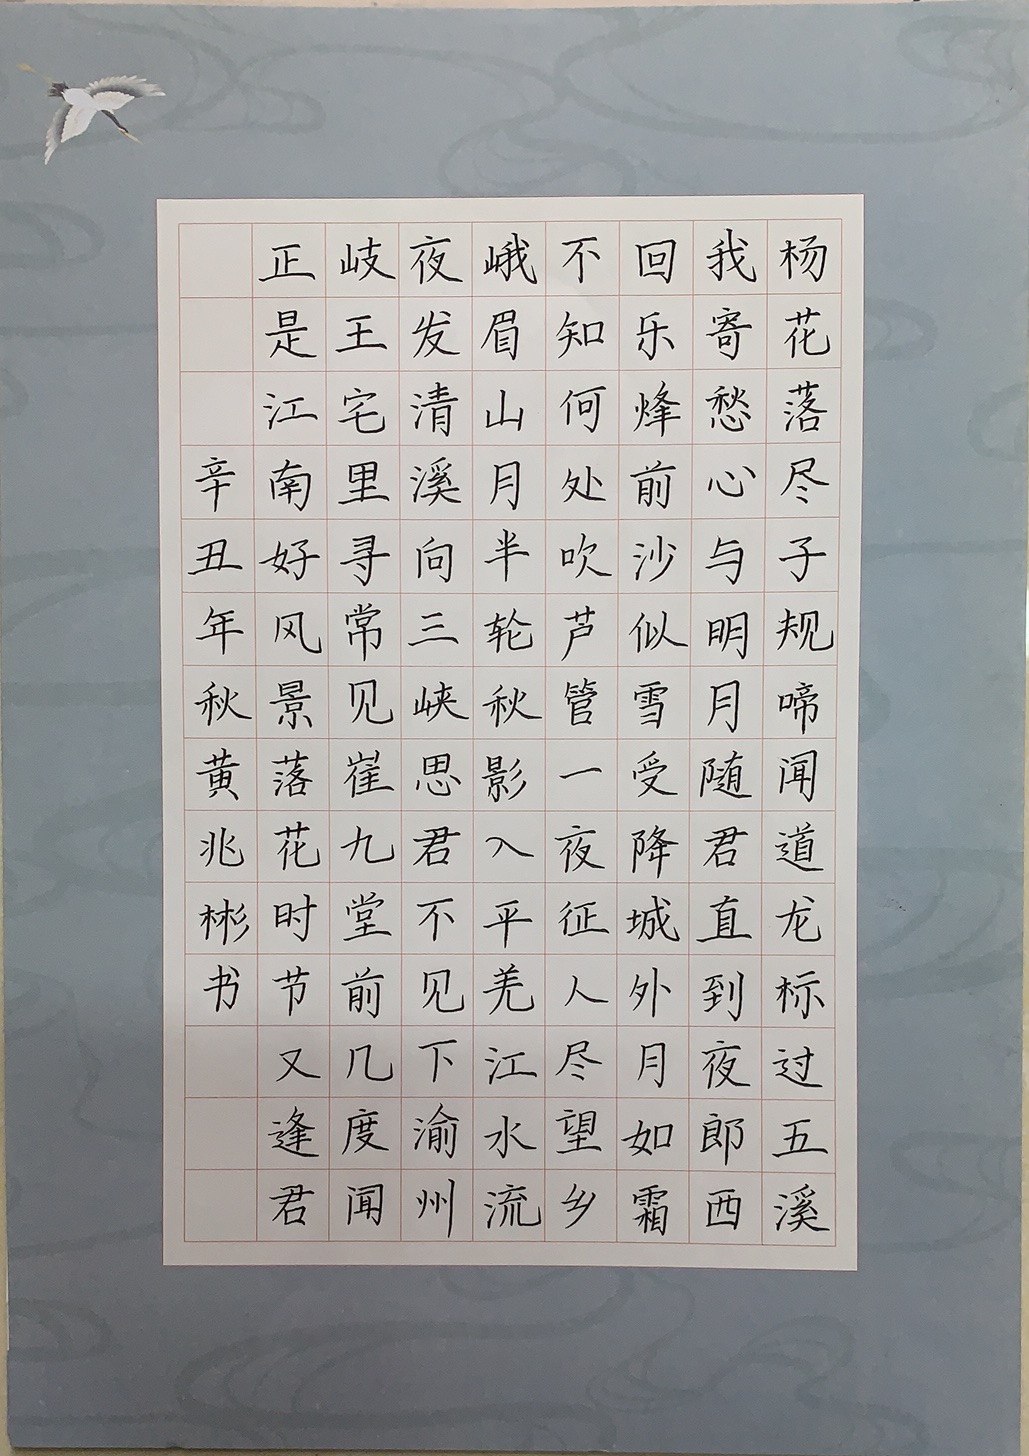 杨花落尽子规啼闻道龙标过五溪
我寄愁心与明月随君直到夜郎西
回乐烽前沙似雪受降城外月如霜
不知何处吹芦管一夜征人尽望乡
峨眉山月半轮秋影入平羌江水流
夜发清溪向三峡思君不见下渝州
岐王宅里寻常见崔九堂前几度闻
正是江南好风景落花时节又逢君
辛丑年秋黄兆彬书